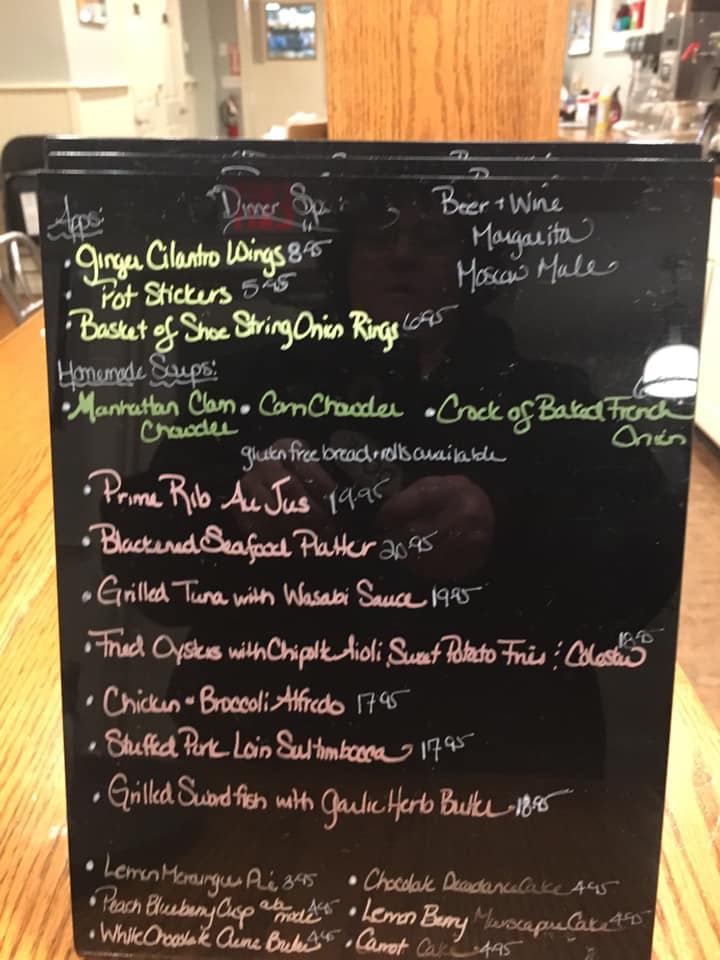 Apps:
Dinner Sp
Beer + Wine
Margarita
Moscow Mule
• Ginger Cilantro Wings 8.95
• Pot Stickers 5.95
• Basket of Shoe String Onion Rings 6.95
Homemade Soups:
• Manhattan Clam Chowder • Corn Chowder • Crock of Baked French Onion
gluten free bread + rolls available
• Prime Rib Au Jus 19.95
• Blackened Seafood Platter 20.95
• Grilled Tuna with Wasabi Sauce 19.95
• Fried Oysters with Chipotle Aioli, Sweet Potato Fries : Coleslaw 18.95
• Chicken - Broccoli Alfredo 17.95
• Stuffed Pork Loin Saltimbocca 17.95
• Grilled Swordfish with Garlic Herb Butter 18.95
• Lemon Meringue Pie 3.95
• Peach Blueberry Crisp ala mode 4.95
• White Chocolate Creme Brulee 4.45
• Chocolate Decadence Cake 4.95
• Lemon Berry Marscapone Cake 4.95
• Carrot Cake 4.95